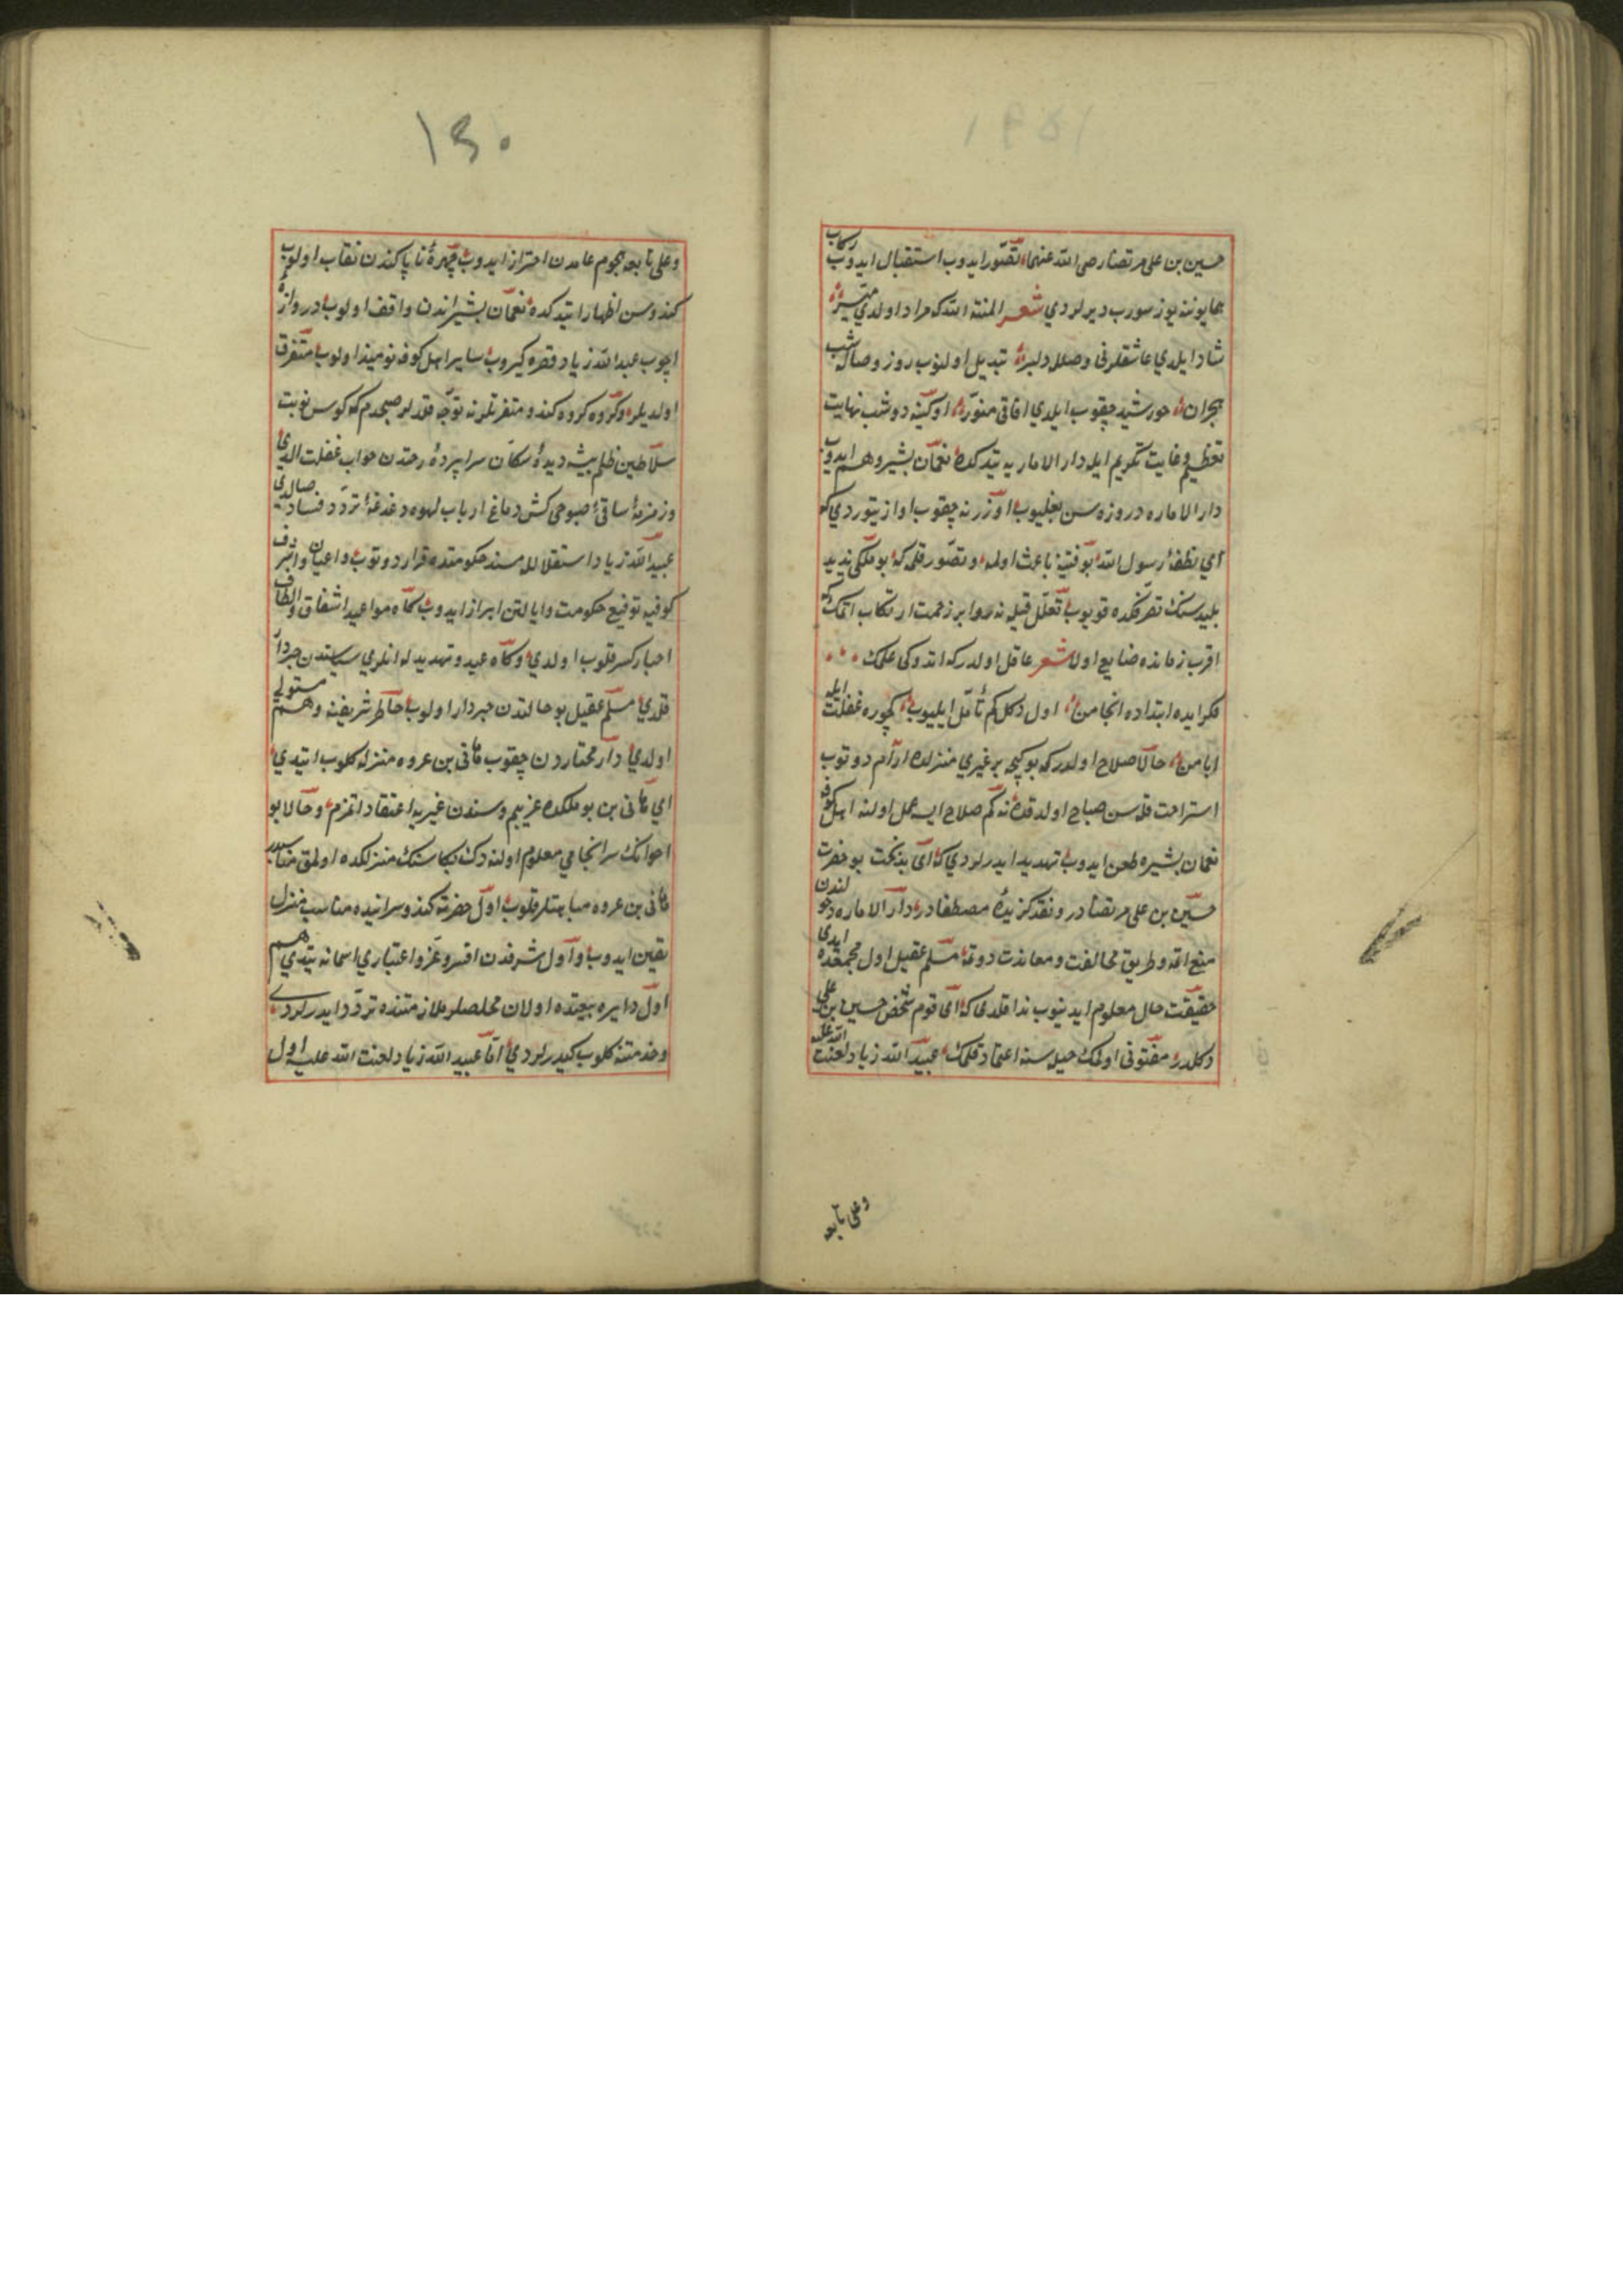 حسین بن علی مرتضا رضی الله عنهما تصوّر ایدوب استقبال ایدوب رکاب
همایوننه یوز سورب دیرلردی شعر المنة الله که مراد اولدی میسّر
شاد ایلدی عاشقلرنی وصل دلبر تبدیل اولنوب روز وصال شب
هجران خورشید چقوب ایلدی افاقی منوّر اوکینه دوشب نهایت
تعظیم وغایت تکریم ایله دار الاماریه یتدکده نعمان بشیر وهم ایدوب
دار الاماره دروزه سن بغلیوب اوزرنه چقوب اواز یتوردی که
ای نطفهٔ رسول الله بو فتنیه باعث اولمه و تصوّر قلمه که بو ملکی یزید
پلید سنك تصرّفکده قویوب تعلّل قیله نه روا بر زحمت ارتکاب اتمك که
اقرب زمانده ضایع اولا شعر عاقل اولدر که اتدوکی عملك
فکر ایده ابتداده انجامن اول دکل کم تأمّل ایلیوب کچوره غفلت ایله
ایامن حالا صلاح اولدر که بو کیجه بر غیری منزلده ارام دوتوب
استراحت قلاسن صباح اولدقده نه کم صلاح ایسه عمل اولنه اهل کوفه
نعمان بشیره طعن ایدوب تهدید ایدرلردی که ای بدبخت بو حضرت
حسین بن علی مرتضادر و نقد کزیدهٔ مصطفادر دار الاماره دخولندن
منع اتمه وطریق مخالفت ومعاندت دوتمه مسلم عقیل اول مجمعده ایدی
حقیقت حال معلوم ایدینوب ندا قلدی که ای قوم شخص حسین بن علی
دکلدر مفتونی اولمك حیله سنه اعتماد قلمك عبید الله زیاد لعنت الله علیه
وعلی تابعه
۱۵۰
وعلی تابعه هجوم عامدن احتراز ایدوب چهرهٔ ناپاکندن نقاب اولوب
کندوسن اظهار ایتدکده نعمان بشیر اندن واقف اولوب دروازه
اچوب عبد الله زیاد قصره کیروب سایر اهل کوفه نومید اولوب متفرق
اولدیلر وکروه کروه کندو مقرلرنه توجّه قلدیلر صبحدم که کوس نوبت
سلاطین ظلم پیشه دیدهٔ سکان سراپردهٔ رحتدن خواب غفلت الدی
وزمزمهٔ ساقیٔ صبوحی کش دماغ ارباب لهوه دغدغهٔ تردّد فساد صالدی
عبید الله زیاد استقلالله مسند حکومتده قرار دوتوب واعیان واشراف
کوفیه توقیع حکومت وایالتن ابراز ایدوب کاه مواعید اشفاق والطافله
احبار کسر قلوب اولدی وکاه عید وتهدیدله انلری سیاستدن خبردار
قلدی مسلم عقیل بو حالتدن خبردار اولوب خاطر شریفینه وهم مستولی
اولدی دار مختاردن چقوب هانی بن عروه منزله کلوب ایتدی
ای هانی بن بو ملکده غریبم وسندن غیریه اعتقاد اتمزم وحالا بو
احوالك سرانجامی معلوم اولنه دك بكا سنك منزلکده اولمق مناسبدر
هانی بن عروه مباهتلر قلوب اول حضرته کندو سرانیده مناسب منزل
تعین ایدوب واول شرفدن افسر وعز واعتباری اسمانه یتدی هم
اول دایره بیعتده اولان مخلصلر ملازمتنده تردّد ایدرلردی
وخدمتنه کلوب کیدرلردی امّا عبید الله زیاد لعنت الله علیه اول